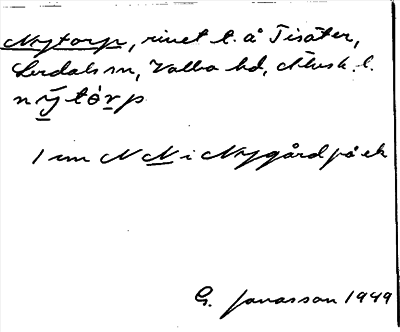 Nytorp, rivet t. å Tisäter,
Lerdals sn, Valbo hd, Älvsb. l.
ny̱tò̱rp
1 km N N i Nygård på ek
G. Jonasson 1949